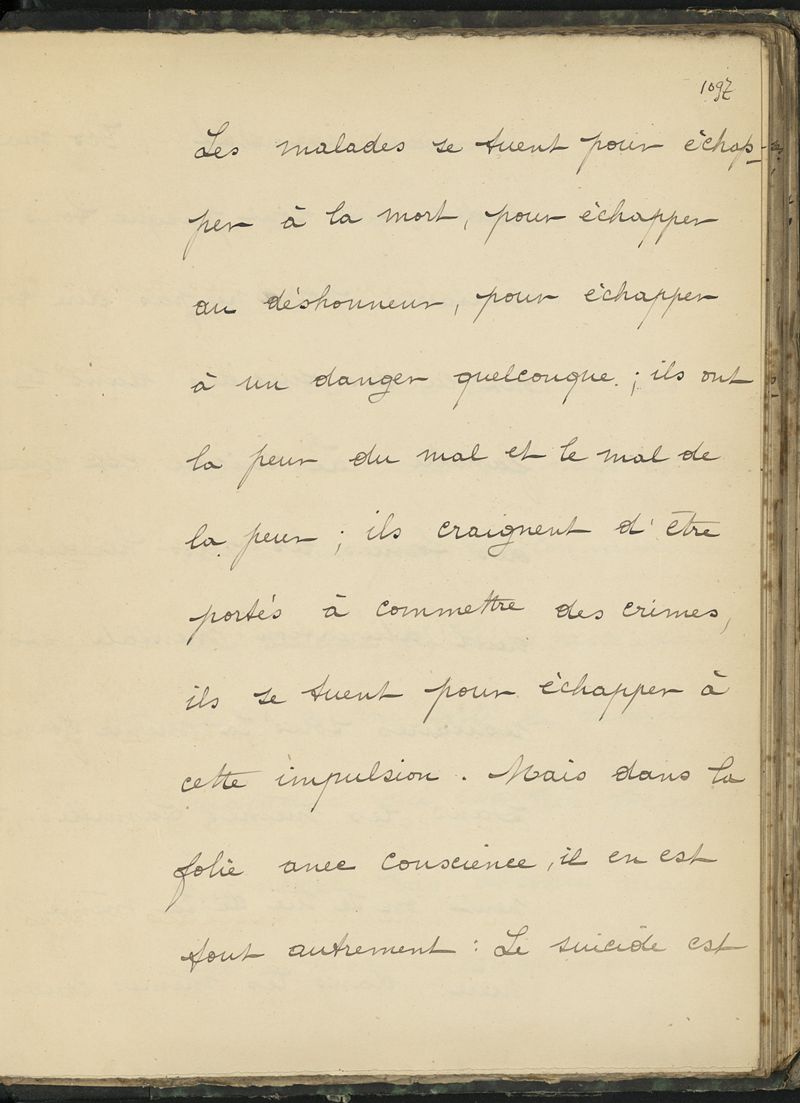 1097
Les malades se tuent pour échap-
per à la mort, pour échapper
au déshonneur, pour échapper
à un danger quelconque ; ils ont
la peur du mal et le mal de
la peur ; ils craignent d'être
portés à commettre des crimes,
ils se tuent pour échapper à
cette impulsion. Mais dans la
folie avec conscience, il en est
tout autrement : Le suicide est